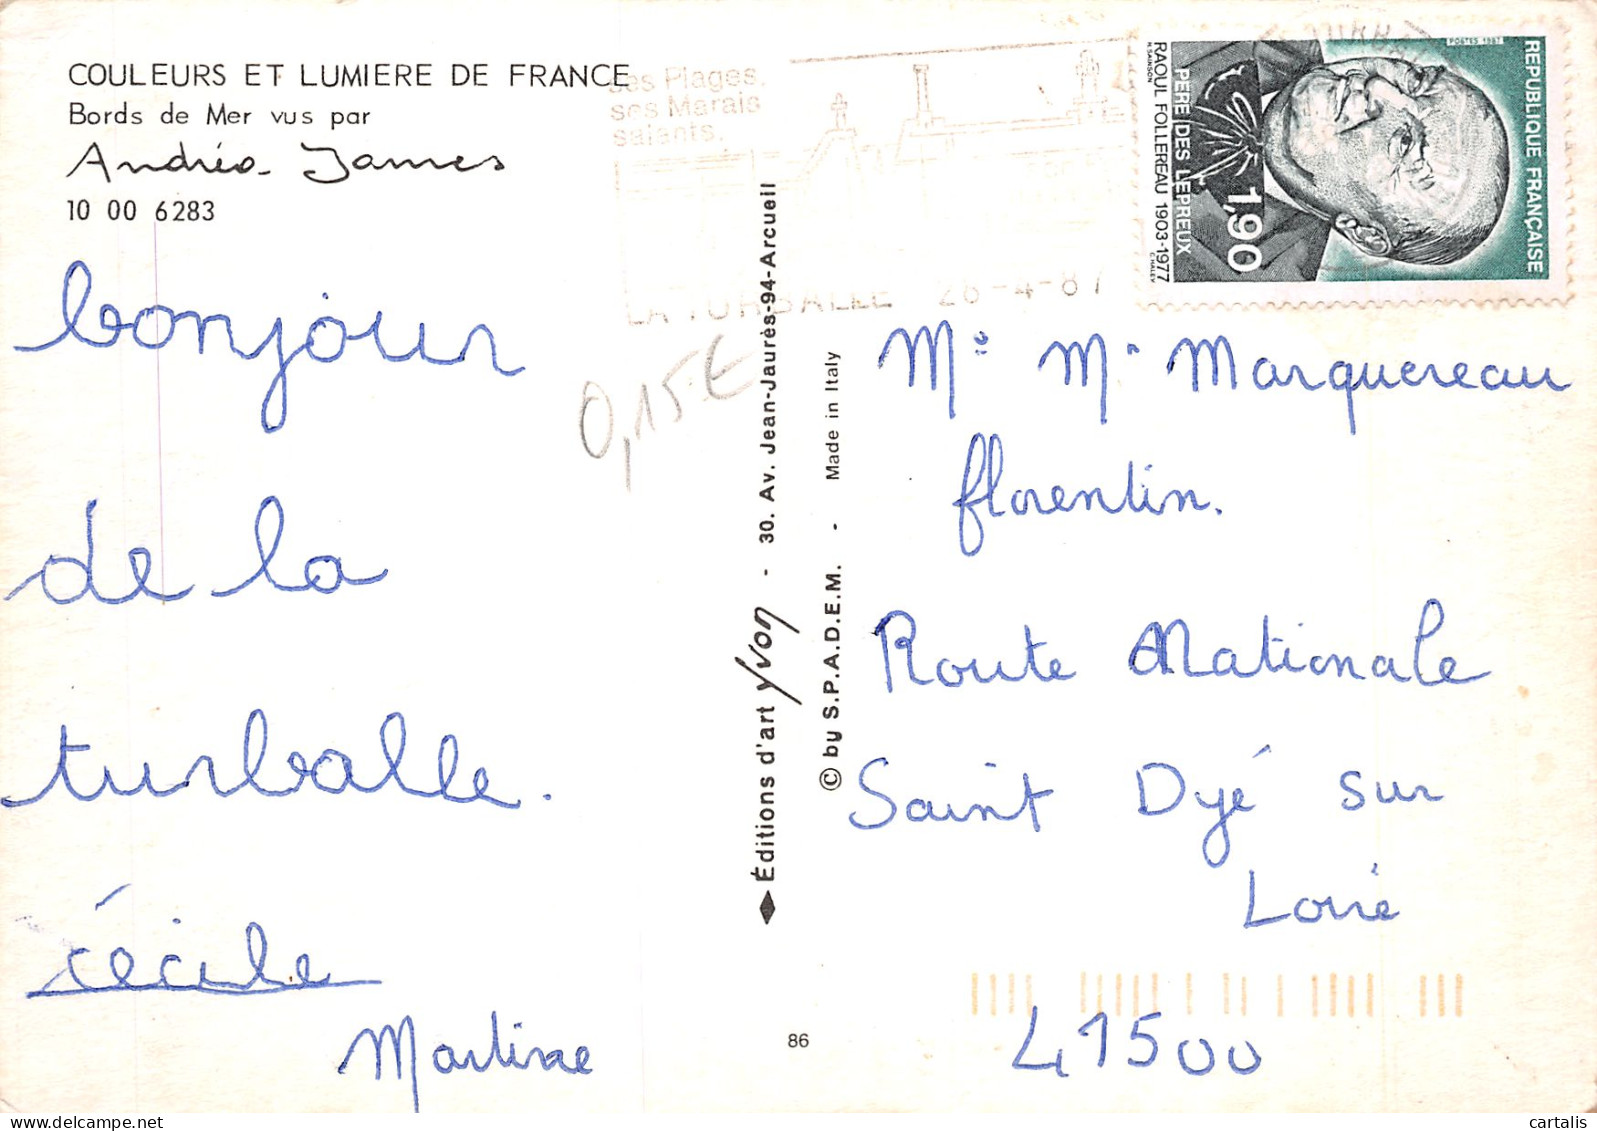 COULEURS ET LUMIERE DE FRANCE
Bords de Mer vus par
Andréa James
10 00 6283
ses Plages.
ses Marais
salants.
LA TURBALLE 28-4-87
REPUBLIQUE FRANÇAISE
POSTES 1987
1,90
PERE DES LEPREUX
RAOUL FOLLEREAU 1903-1977
bonjour
de la
turballe.
cécile
Martine
0,15€
Éditions d'art Yvon - 30. Av. Jean-Jaurès-94-Arcueil
© by S.P.A.D.E.M. - Made in Italy
Me Mr Marquereau
florentin.
Route Nationale
Saint Dyé sur
Loire
41500
86
cartalis